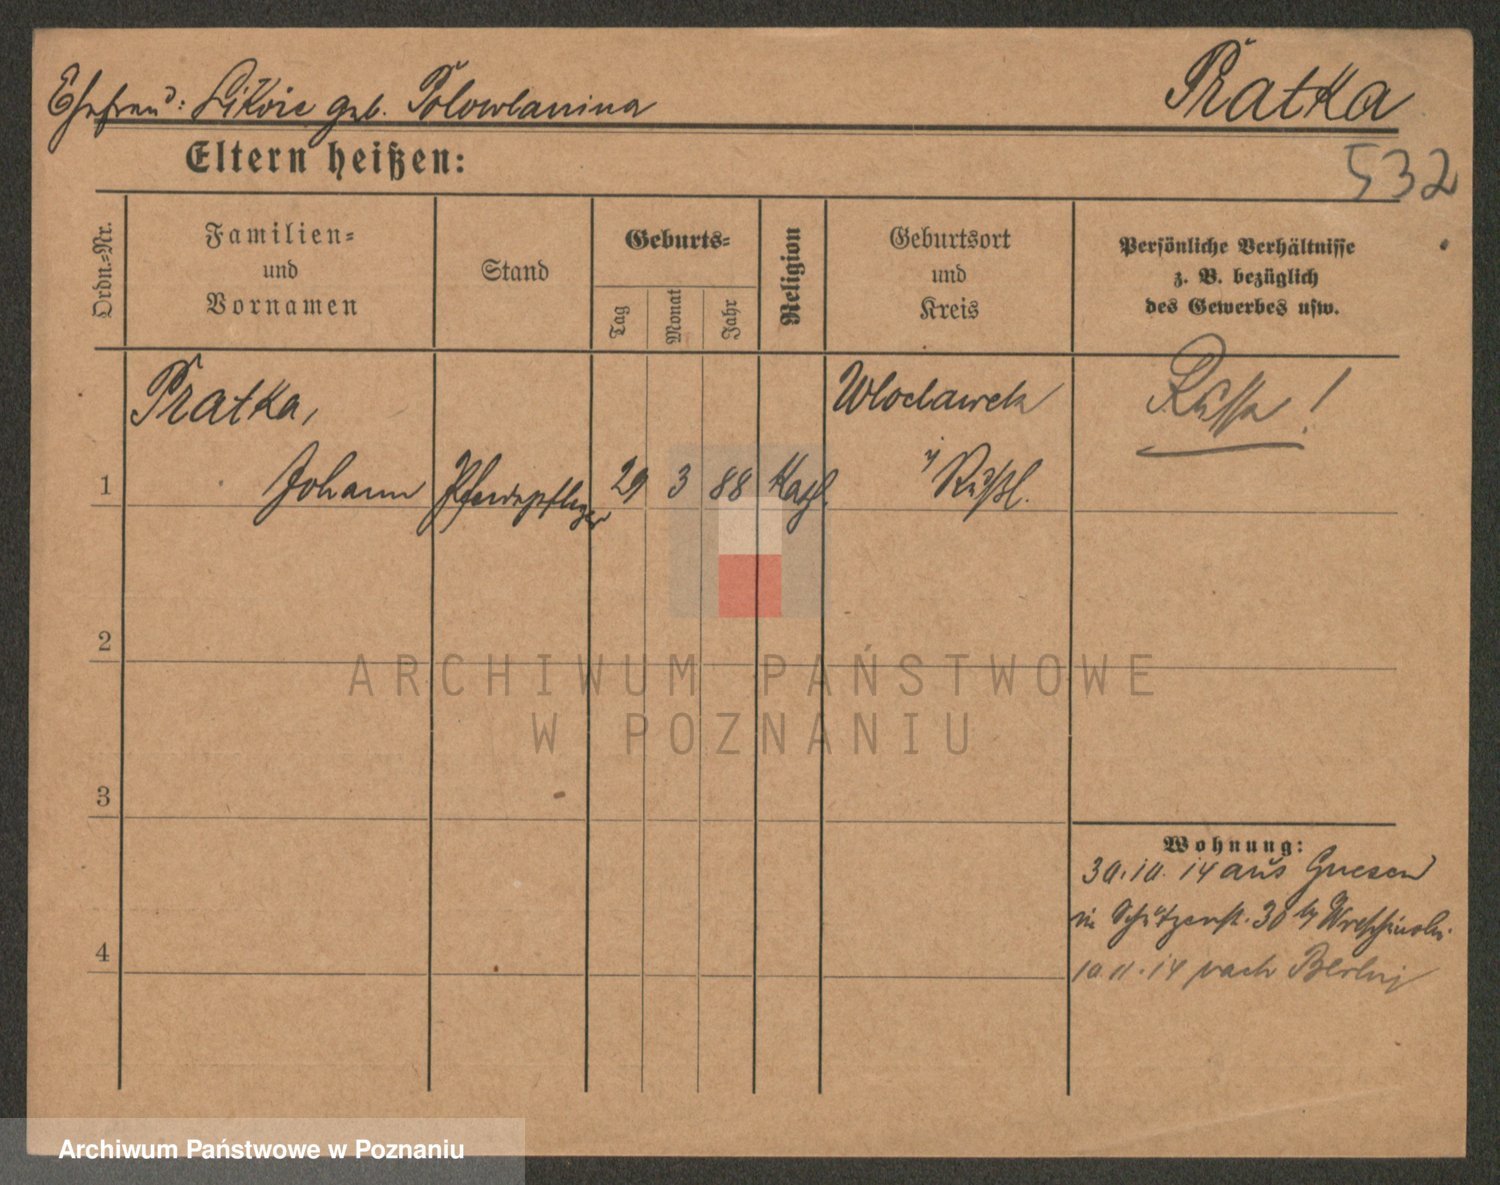 Ehefrau: geb. Polowlanina
Pratka
Eltern heißen:
532
Ordn.-Nr.
Familien-
und
Vornamen
Stand
Geburts-
Tag
Monat
Jahr
Religion
Geburtsort
und
Kreis
Persönliche Verhältnisse
z. B. bezüglich
des Gewerbes usw.
Pratka,
Wloclawek
Russe!
1 Johann Pferdepfleger 29 3 88 Kath. Rußl.
2
ARCHIWUM PAŃSTWOWE
W POZNANIU
3
Wohnung:
30.10.14 aus Gnesen
in Schützenstr. 30 by
4
10.11.14 nach Berlin
Archiwum Państwowe w Poznaniu